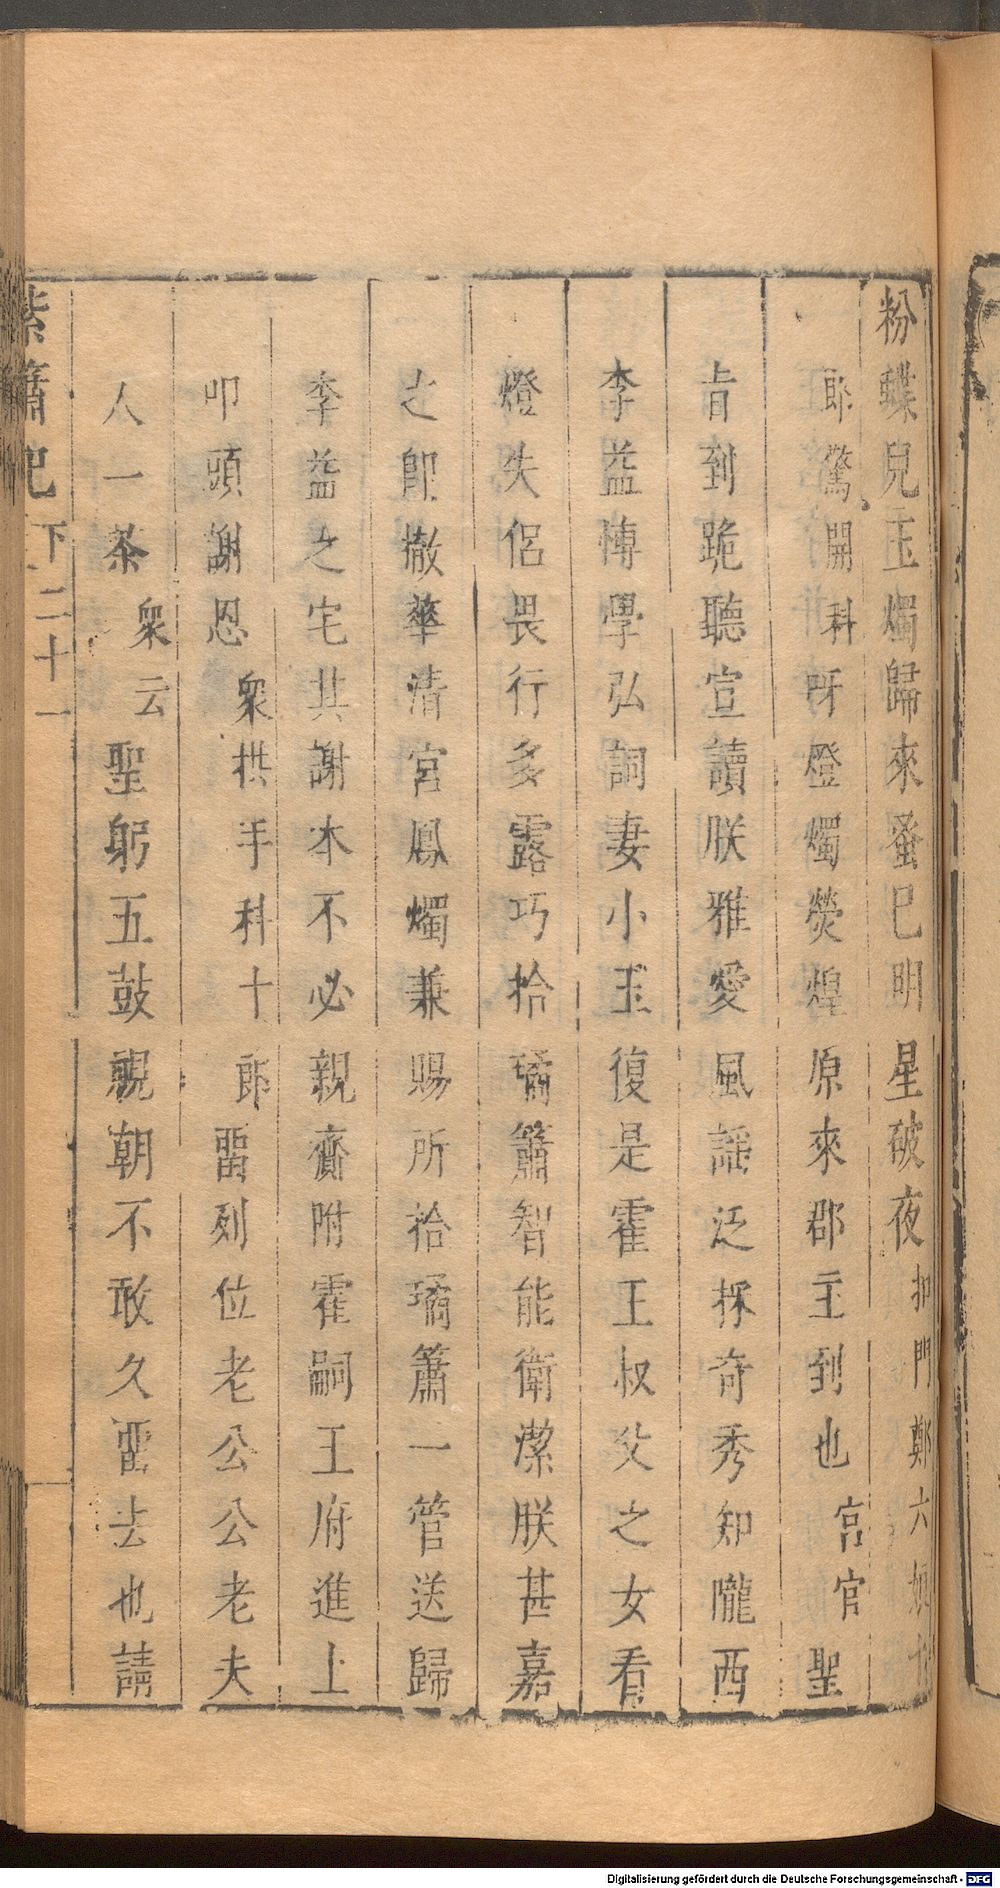 粉蝶兒玉燭歸來蚤巳明星破夜抑門鄭六娘十
郎驚開科呀燈燭熒煌原來郡主到也宮官聖
旨到跪聽宣讀朕雅愛風謡泛採奇秀知隴西
李益博學弘詞妻小玉復是霍王叔父之女看
燈失侶畏行多露巧拾璚簫智能衛潔朕甚嘉
之卽撤華清宮鳳燭兼賜所拾璚簫一管送歸
李益之宅其謝本不必親齎附霍嗣王府進上
叩頭謝恩衆拱手科十郎畱列位老公公老夫
人一茶衆云聖躬五鼓親朝不敢久畱去也請
紫簫記 下 二十一
Digitalisierung gefördert durch die Deutsche Forschungsgemeinschaft - DFG